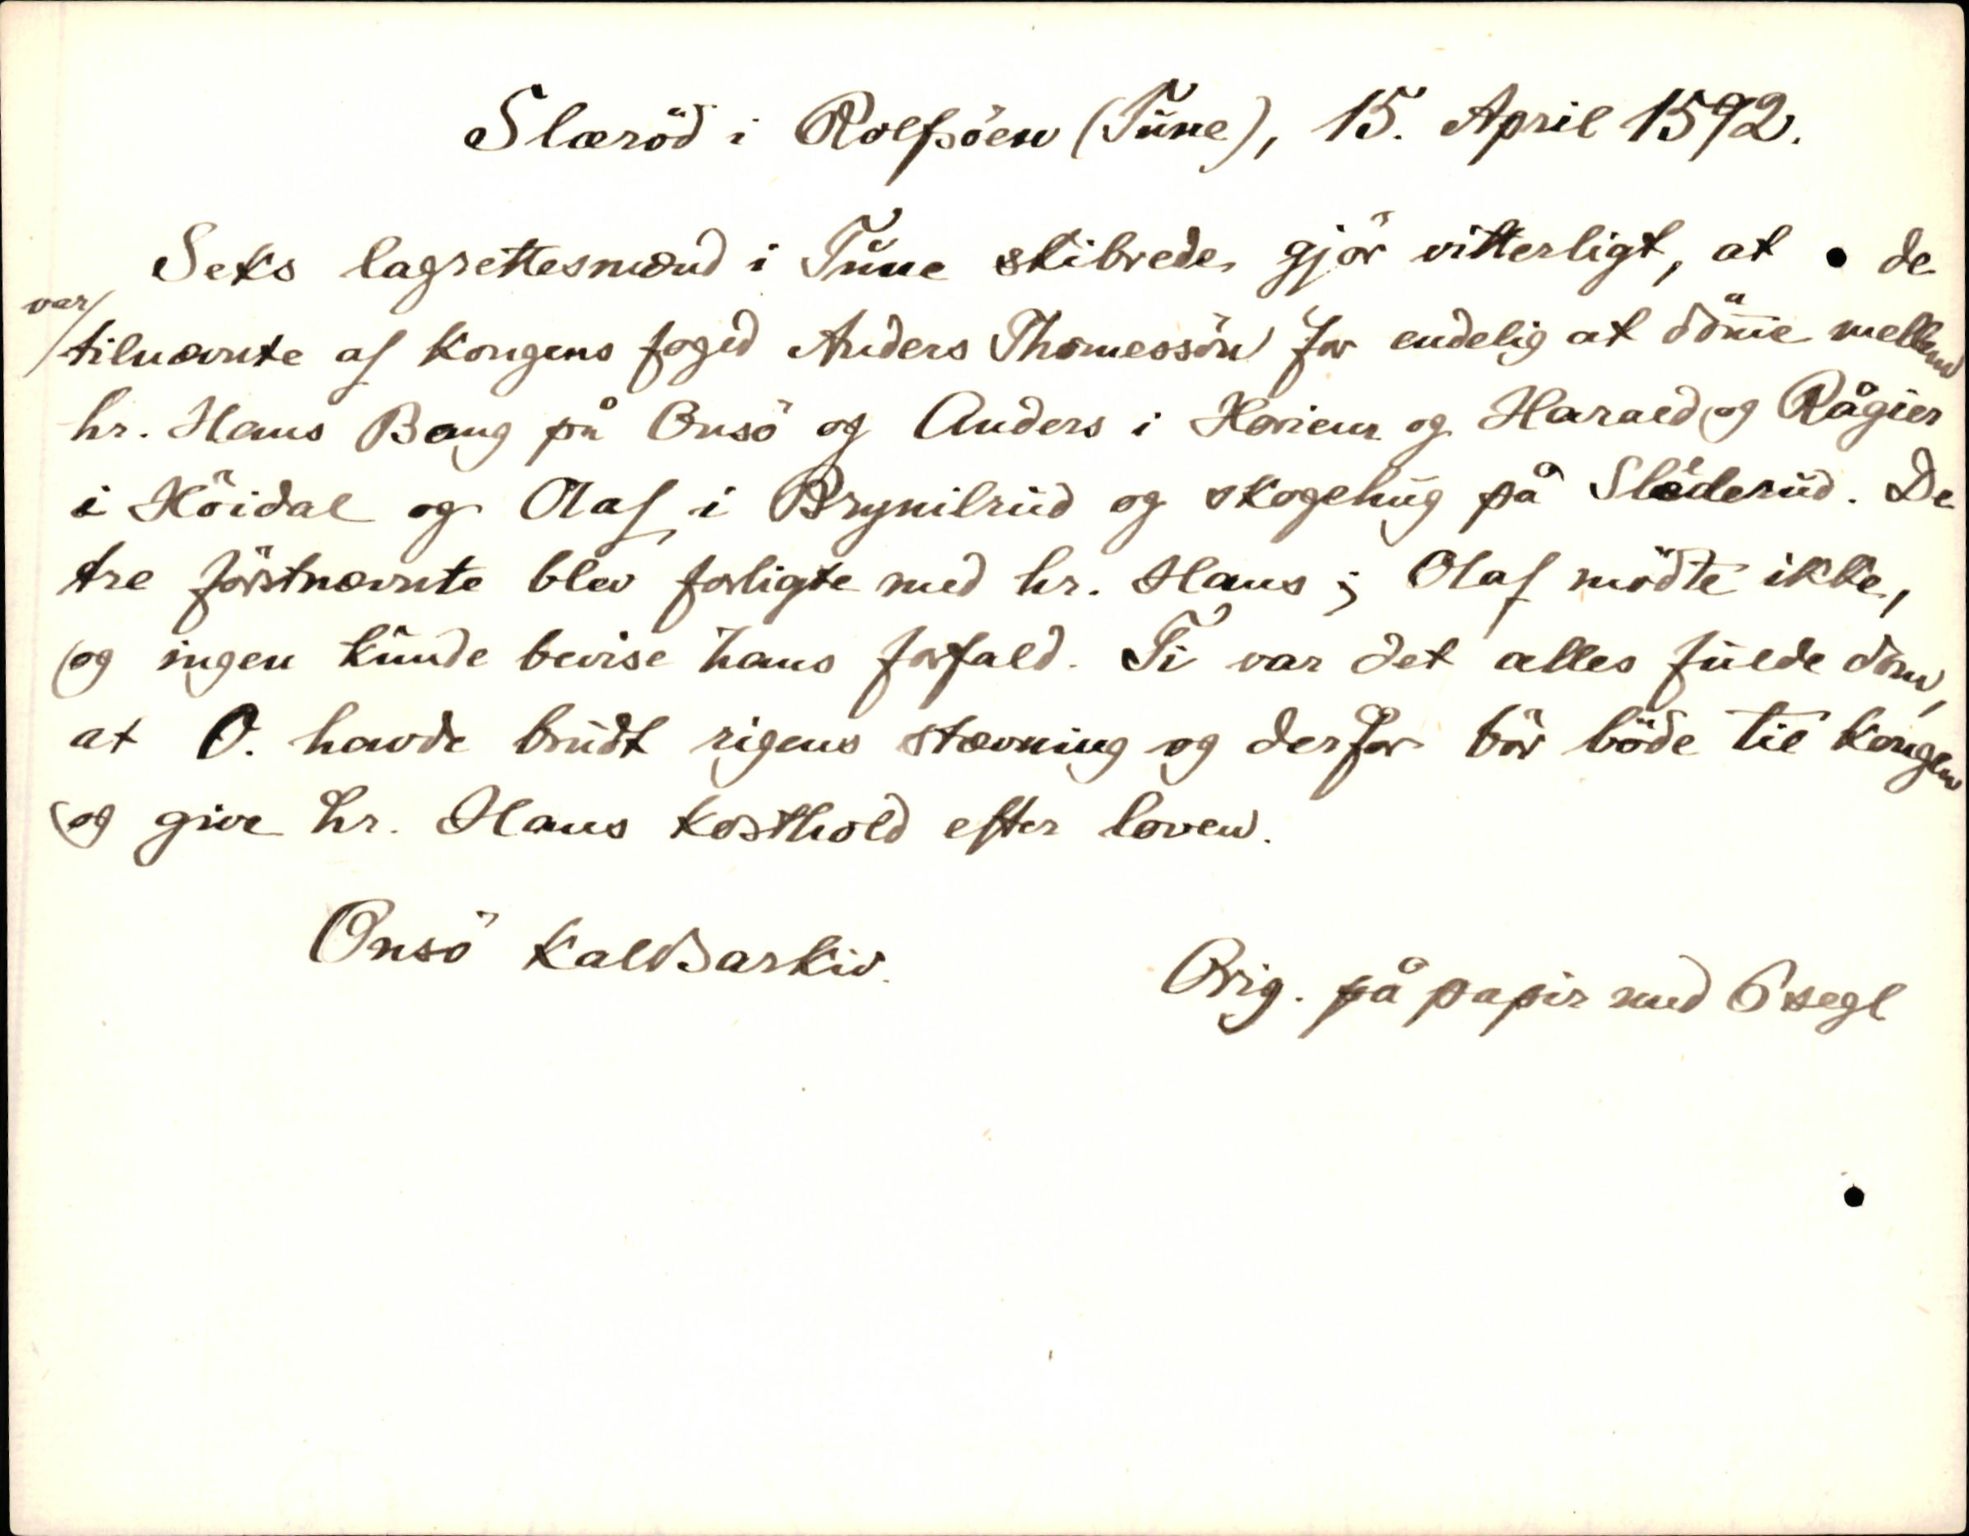 Slæröd i Rolfsöen (Tune), 15. April 1592.
Seks lagrettesmænd i Tune skibrede gjör vitterligt, at de
var/
tilnævnte af kongens foged Anders Thomessön for endelig at döme mellem
hr. Hans Bang på Onsö og Anders i Havieur og Harald og Rågier
i Höidal og Olaf i Brynilrud og skogehug på Släderud. De
tre förstnævnte blev forligte med hr. Hans; Olaf mödte ikke,
og ingen kunde bevise hans forfald. Ti var det alles fulde dom,
at O. havde brudt rigens stævning og derfor bör böde til kongen
og give hr. Hans kosthold efter loven.
Onsö kaldsarkiv.
Orig. på papir med 6 segl